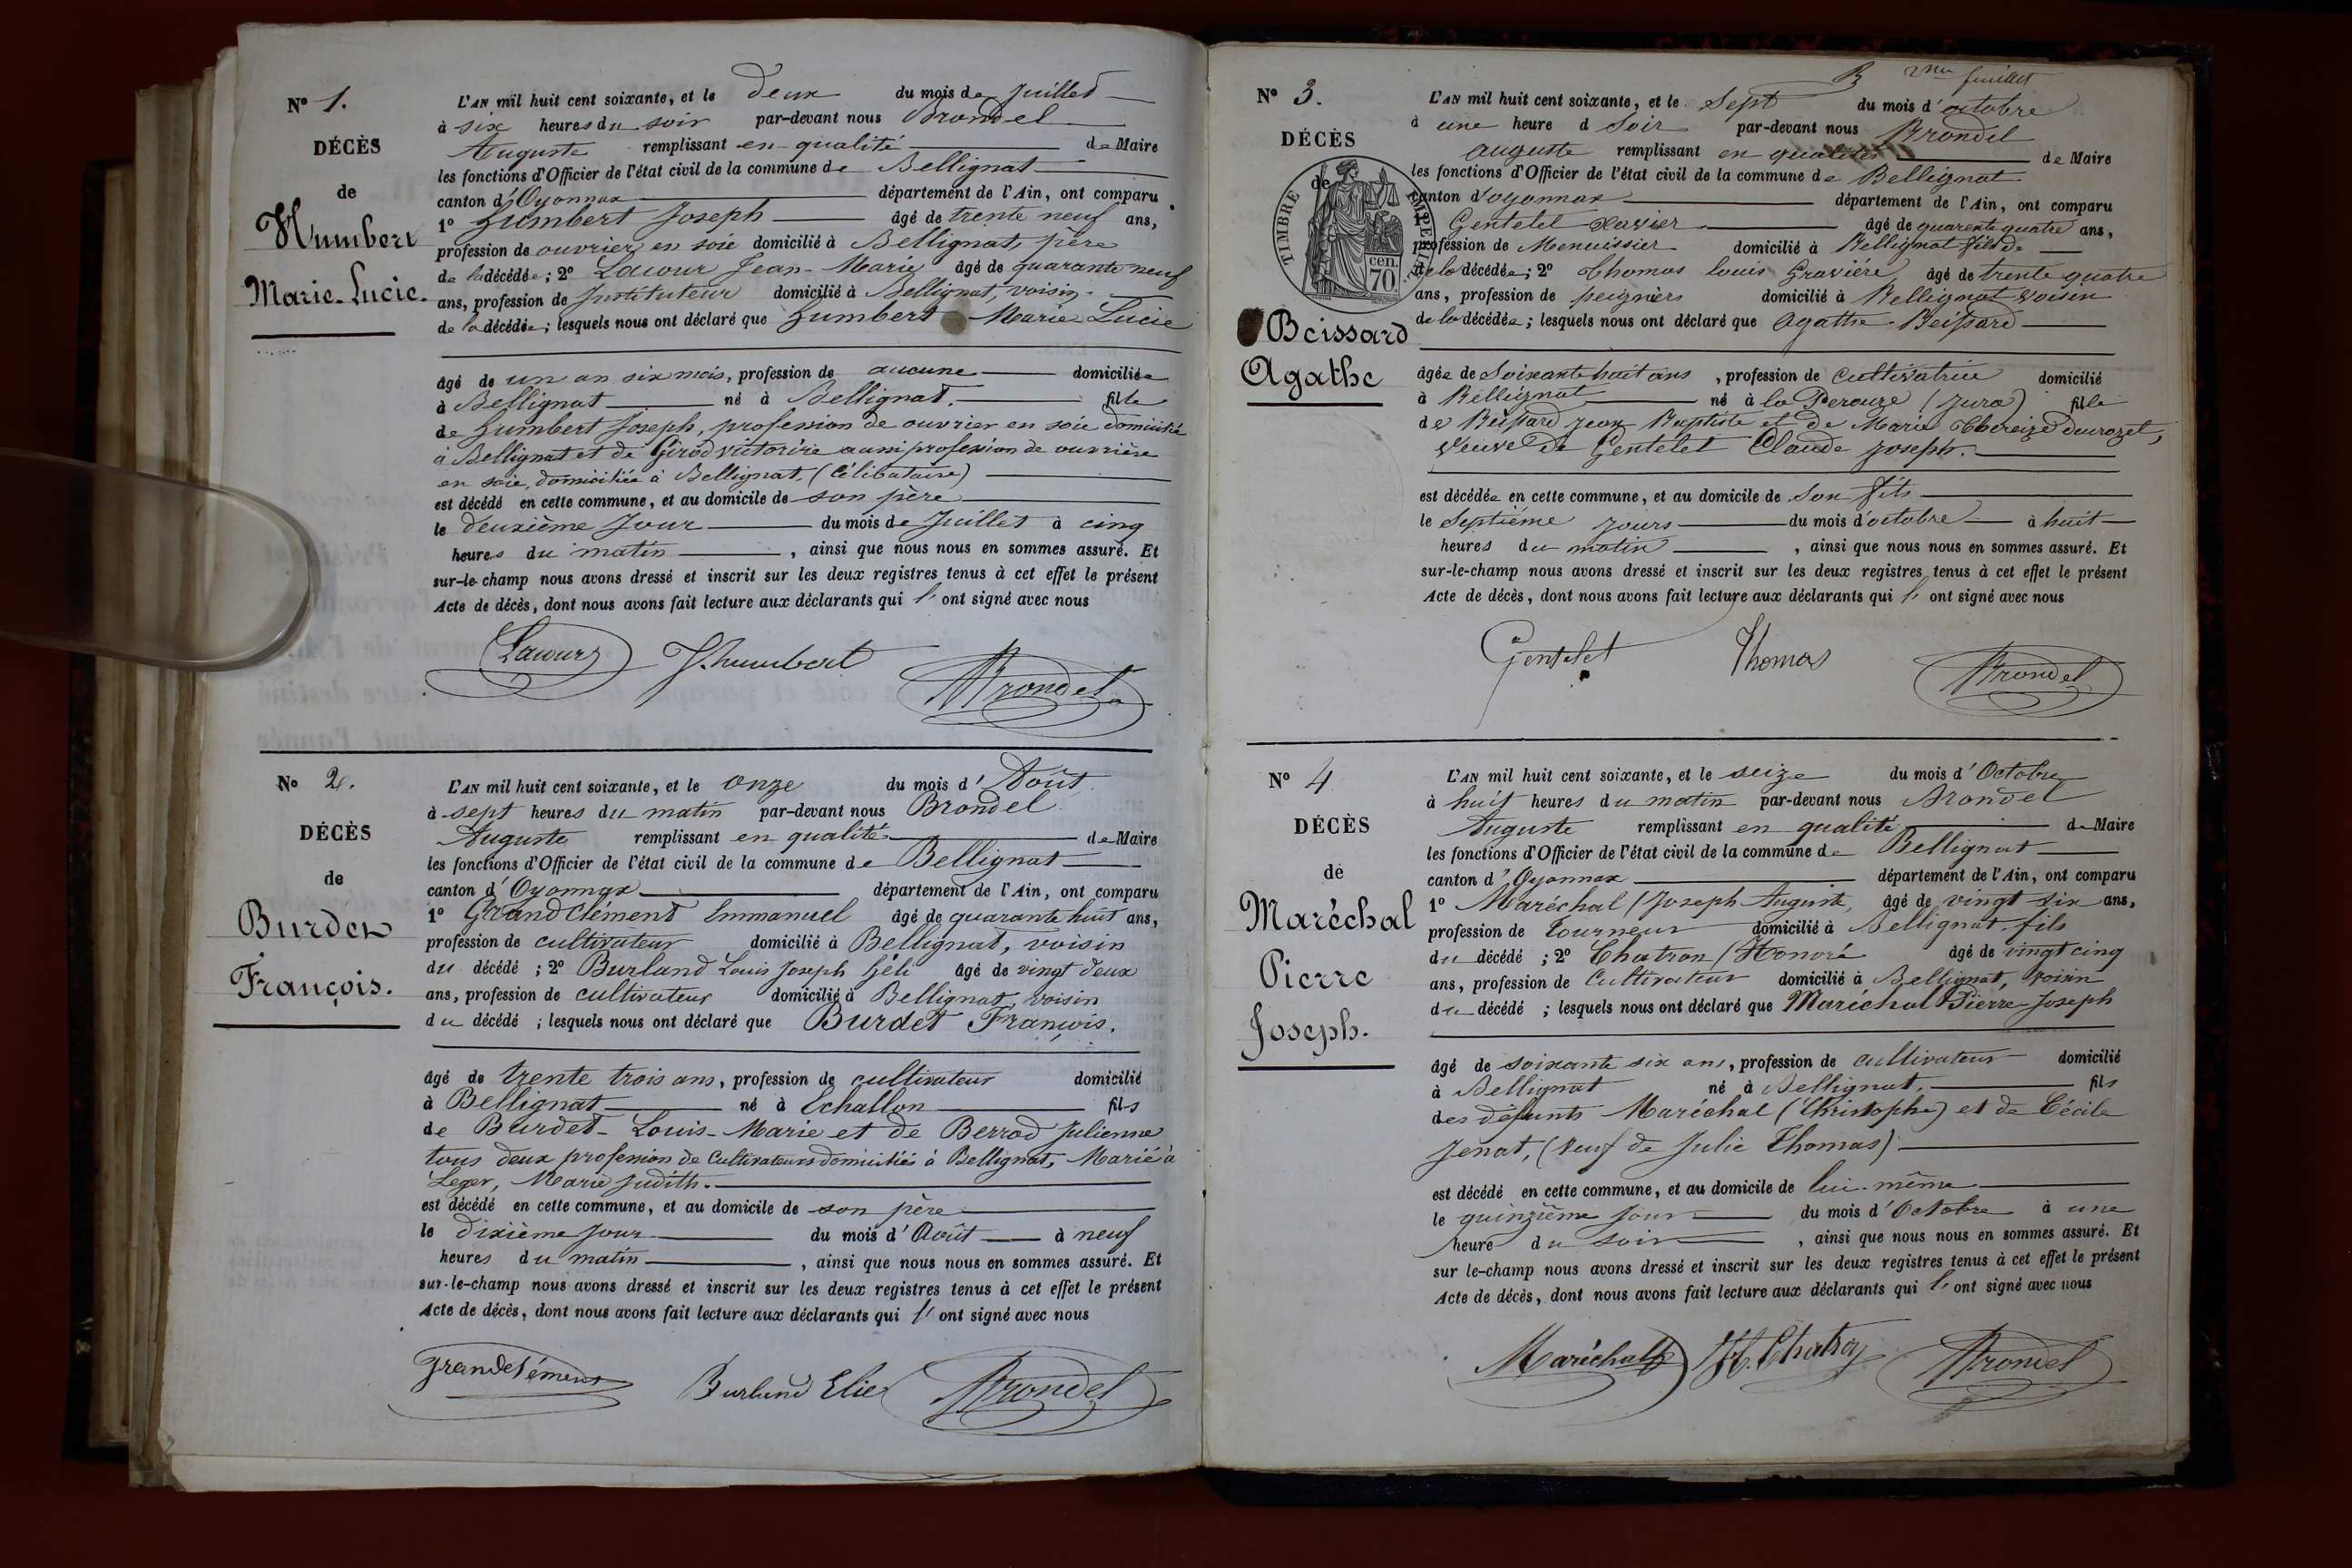 N° 1.
DÉCÈS
de
Humbert
Marie-Lucie.
L'AN mil huit cent soixante, et le deux du mois de Juillet
à six heures du soir par-devant nous Brondel
Auguste remplissant en qualité de Maire
les fonctions d'Officier de l'état civil de la commune de Bellignat
canton d'Oyonnax département de l'Ain, ont comparu
1° humbert Joseph âgé de trente neuf ans,
profession de ouvrier en soie domicilié à Bellignat, père
de la décédée; 2° Lacour Jean-Marie âgé de quarante neuf
ans, profession de Instituteur domicilié à Bellignat, voisin
de la décédée; lesquels nous ont déclaré que humbert Marie Lucie
âgé de un an six mois, profession de aucune domiciliée
à Bellignat né à Bellignat. fille
de humbert Joseph, profession de ouvrier en soie domicilié
à Bellignat et de Girod victorire aussi profession de ouvrière
en soie, domiciliée à Bellignat, (Célibataire)
est décédé en cette commune, et au domicile de son père
le deuxième Jour du mois de Juillet à cinq
heures du matin, ainsi que nous nous en sommes assuré. Et
sur-le-champ nous avons dressé et inscrit sur les deux registres tenus à cet effet le présent
Acte de décès, dont nous avons fait lecture aux déclarants qui l' ont signé avec nous
Lacour J. humbert Brondel
N° 2.
DÉCÈS
de
Burdet
François.
L'AN mil huit cent soixante, et le onze du mois d'Août
à sept heures du matin par-devant nous Brondel
Auguste remplissant en qualité de Maire
les fonctions d'Officier de l'état civil de la commune de Bellignat
canton d'Oyonnax département de l'Ain, ont comparu
1° Grandclément Emmanuel âgé de quarante huit ans,
profession de cultivateur domicilié à Bellignat, voisin
du décédé ; 2° Burland Louis Joseph héli âgé de vingt deux
ans, profession de cultivateur domicilié à Bellignat, voisin
du décédé ; lesquels nous ont déclaré que Burdet François.
âgé de trente trois ans, profession de cultivateur domicilié
à Bellignat né à Echallon fils
de Burdet-Louis-Marie et de Berrod Julienne
tous deux profession de Cultivateurs domiciliés à Bellignat, Marié à
Leger, Marie Judith.
est décédé en cette commune, et au domicile de son père
le dixième Jour du mois d'Août à neuf
heures du matin, ainsi que nous nous en sommes assuré. Et
sur-le-champ nous avons dressé et inscrit sur les deux registres tenus à cet effet le présent
Acte de décès, dont nous avons fait lecture aux déclarants qui l' ont signé avec nous
Grandclément Burland Elie Brondel
2me feuillet
N° 3.
DÉCÈS
de
TIMBRE IMPERIAL
cen.
70
Beissard
Agathe
L'AN mil huit cent soixante, et le Sept du mois d'octobre
à une heure d Soir par-devant nous Brondel
auguste remplissant en qualités de Maire
les fonctions d'Officier de l'état civil de la commune de Bellignat
canton d'oyonnax département de l'Ain, ont comparu
1° Gentelet Xavier âgé de quarente quatre ans,
profession de Menuissier domicilié à Bellignat fils de
de la décédée; 2° Thomas louis Graviére âgé de trente quatre
ans, profession de peigniers domicilié à Bellignat voisin
de la décédée; lesquels nous ont déclaré que agathe Beissard
âgée de Soixante huit ans, profession de Cultivatrice domicilié
à Bellignat né à la Perouze (Jura) fille
de Beissard jean Baptiste et de Marie
Veuve de Gentelet Claude joseph.
est décédée en cette commune, et au domicile de Son fils
le Septiéme jours du mois d'octobre à huit
heures du matin, ainsi que nous nous en sommes assuré. Et
sur-le-champ nous avons dressé et inscrit sur les deux registres tenus à cet effet le présent
Acte de décès, dont nous avons fait lecture aux déclarants qui l' ont signé avec nous
Gentelet Thomas Brondel
N° 4
DÉCÈS
de
Maréchal
Pierre
Joseph.
L'AN mil huit cent soixante, et le seize du mois d'Octobre
à huit heures du matin par-devant nous Brondel
Auguste remplissant en qualité de Maire
les fonctions d'Officier de l'état civil de la commune de Bellignat
canton d'Oyonnax département de l'Ain, ont comparu
1° Maréchal (Joseph Auguste, âgé de vingt six ans,
profession de Tourneur domicilié à Bellignat, fils
du décédé ; 2° Chatron (Honoré âgé de vingt cinq
ans, profession de Cultivateur domicilié à Bellignat, voisin
du décédé ; lesquels nous ont déclaré que Maréchal Pierre Joseph
âgé de soixante six ans, profession de cultivateur domicilié
à Bellignat né à Bellignat. fils
des défunts Maréchal (Christophe) et de Cécile
Jenat, (Veuf de Julie Thomas)
est décédé en cette commune, et au domicile de lui-même
le quinzième jour du mois d'Octobre à une
heure du soir, ainsi que nous nous en sommes assuré. Et
sur le-champ nous avons dressé et inscrit sur les deux registres tenus à cet effet le présent
Acte de décès, dont nous avons fait lecture aux déclarants qui l' ont signé avec nous
Maréchal H. Chatron Brondel